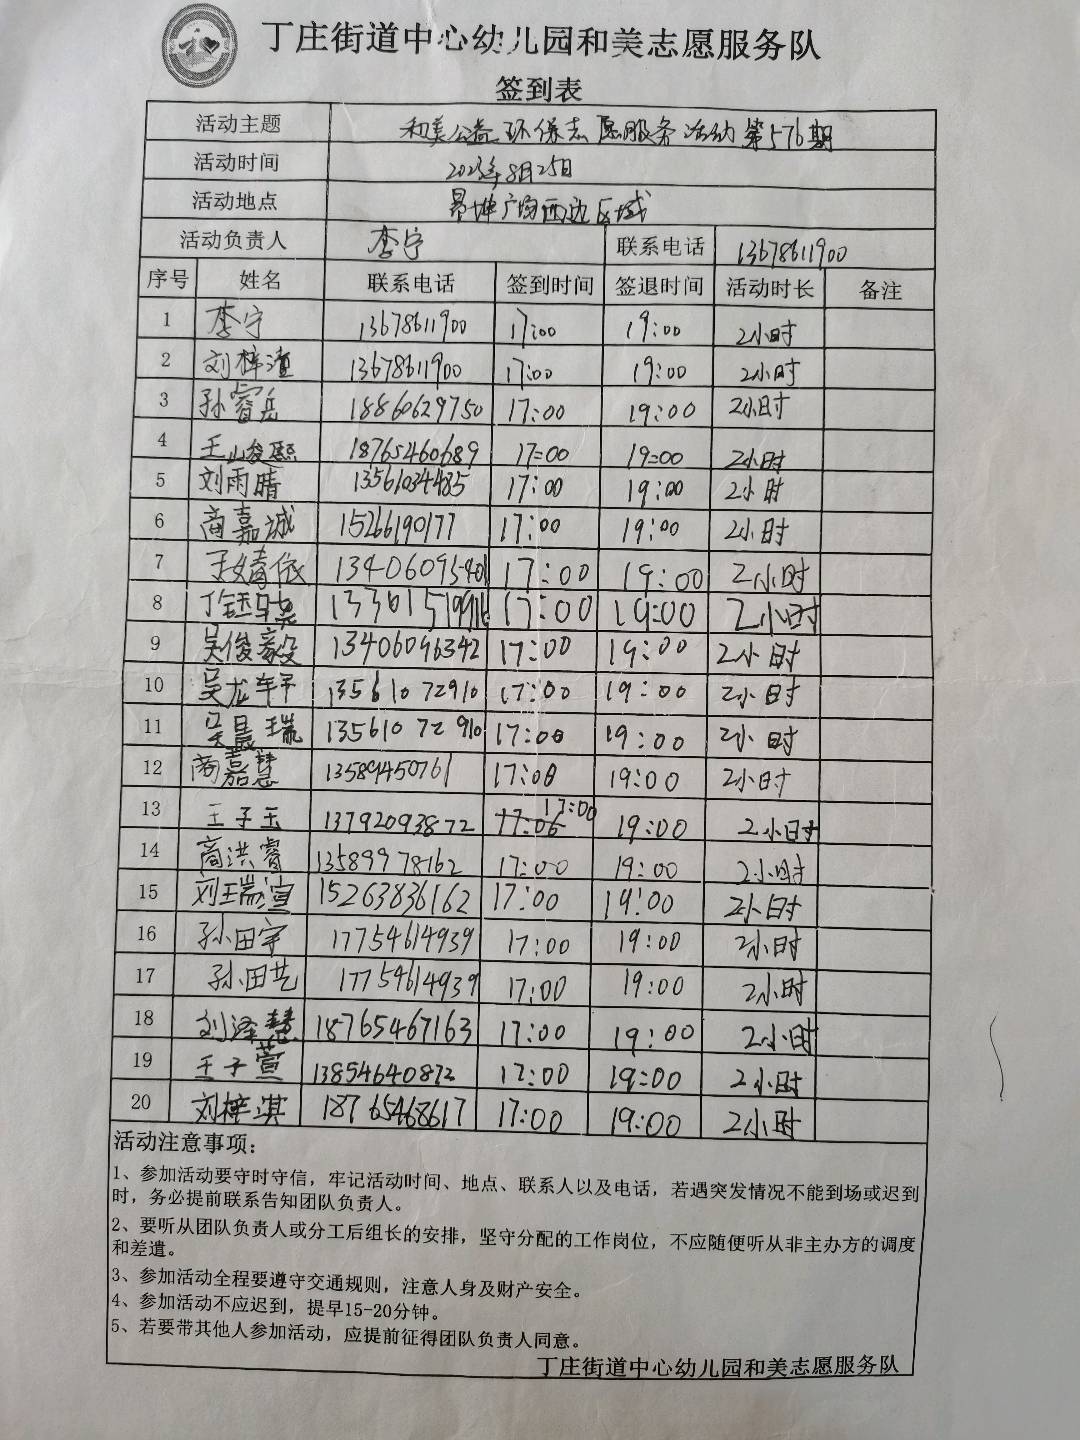 丁庄街道中心幼儿园和美志愿服务队
签到表
活动主题 和美公益环保志愿服务活动第576期
活动时间 2023年8月25日
活动地点 昂坤广场西边区域
活动负责人 李宁 联系电话 13678611900
序号 姓名 联系电话 签到时间 签退时间 活动时长 备注
1 李宁 13678611900 17:00 19:00 2小时
2 刘梓渲 13678611900 17:00 19:00 2小时
3 孙睿岳 18860629750 17:00 19:00 2小时
4 王山俊熙 18765460689 17:00 19:00 2小时
5 刘雨晴 13561034485 17:00 19:00 2小时
6 商嘉诚 15266190177 17:00 19:00 2小时
7 婧依 13406095401 17:00 19:00 2小时
8 丁钰 17:00 19:00 2小时
9 吴俊毅 13406096342 17:00 19:00 2小时
10 吴龙轩 13561072910 17:00 19:00 2小时
11 吴晨瑞 13561072910 17:00 19:00 2小时
12 商嘉慧 13589450761 17:00 19:00 2小时
13 王子玉 13792093872 17:06 17:00 19:00 2小时
14 商洪睿 13589978162 17:00 19:00 2小时
15 刘瑞渲 15263836162 17:00 19:00 2小时
16 孙田宇 17754614939 17:00 19:00 2小时
17 孙田艺 17754614939 17:00 19:00 2小时
18 刘泽慧 18765467163 17:00 19:00 2小时
19 王子萱 13854640872 17:00 19:00 2小时
20 刘梓淇 18765468617 17:00 19:00 2小时
活动注意事项：
1、参加活动要守时守信，牢记活动时间、地点、联系人以及电话，若遇突发情况不能到场或迟到
时，务必提前联系告知团队负责人。
2、要听从团队负责人或分工后组长的安排，坚守分配的工作岗位，不应随便听从非主办方的调度
和差遣。
3、参加活动全程要遵守交通规则，注意人身及财产安全。
4、参加活动不应迟到，提早15-20分钟。
5、若要带其他人参加活动，应提前征得团队负责人同意。
丁庄街道中心幼儿园和美志愿服务队